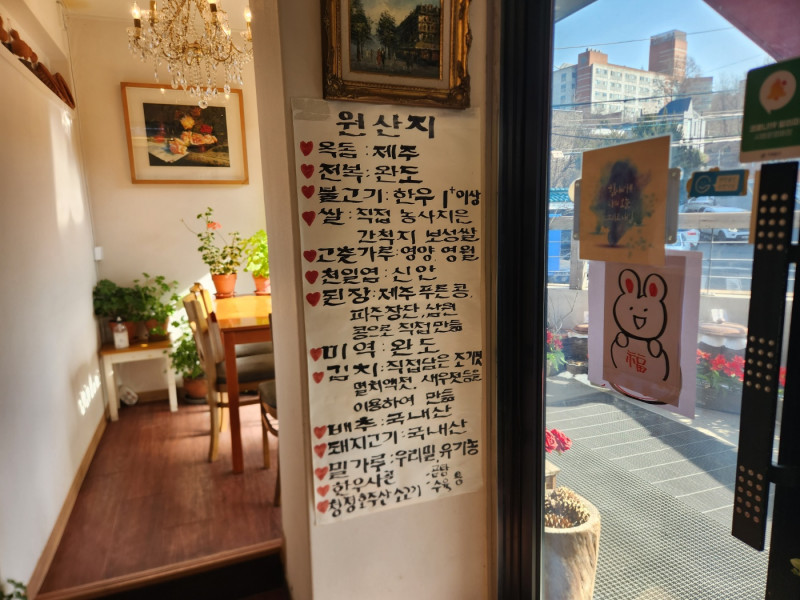 원산지
옥돔 : 제주
전복 : 완도
불고기 : 한우 1+이상
쌀 : 직접 농사지은
간척지 보성쌀
고춧가루 : 영양 영월
천일염 : 신안
된장 : 제주 푸른콩,
파주장단, 남원
콩으로 직접만듦
미역 : 완도
김치 : 직접담은 조기젓
멸치액젓, 새우젓등을
이용하여 만듦
배추 : 국내산
돼지고기 : 국내산
밀가루 : 우리밀, 유기농
한우사골
청정호주산 소고기
福